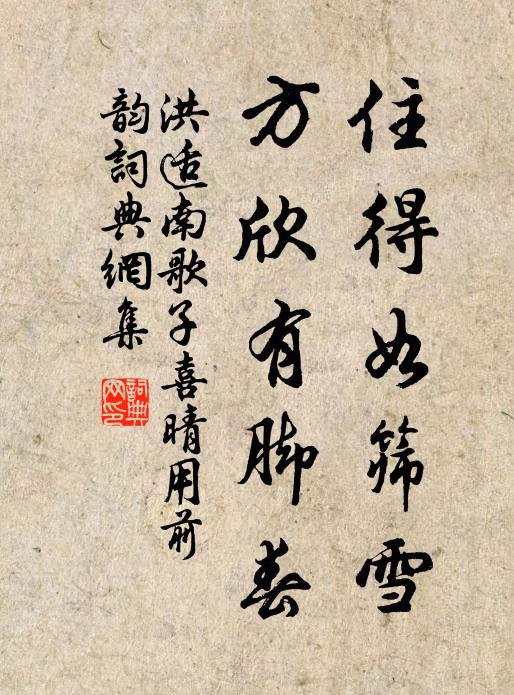 住得如筛雪
方欣有脚春
洪适南歌子喜晴用前
韵词典網集
詞典
网印